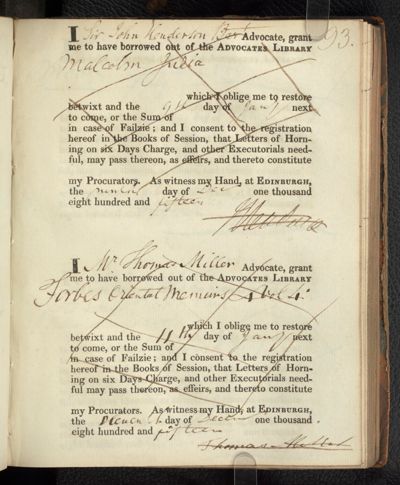 93.
I Sir John Henderson Bart Advocate, grant
me to have borrowed out of the ADVOCATES LIBRARY
Malcolm India
which I oblige me to restore
betwixt and the 9th day of Jany next
to come, or the Sum of
in case of Failzie; and I consent to the registration
hereof in the Books of Session, that Letters of Horn-
ing on six Days Charge, and other Executorials need-
ful, may pass thereon, as effeirs, and thereto constitute
my Procurators. As witness my Hand, at EDINBURGH,
the day of Dec one thousand
eight hundred and fifteen
I Mr. Thomas Miller Advocate, grant
me to have borrowed out of the ADVOCATES LIBRARY
Forbes Oriental Memoirs
which I oblige me to restore
betwixt and the 11th day of Jany next
to come, or the Sum of
in case of Failzie; and I consent to the registration
hereof in the Books of Session, that Letters of Horn-
ing on six Days Charge, and other Executorials need-
ful, may pass thereon, as effeirs, and thereto constitute
my Procurators. As witness my Hand, at EDINBURGH,
the day of one thousand
eight hundred and fifteen
Thomas Miller